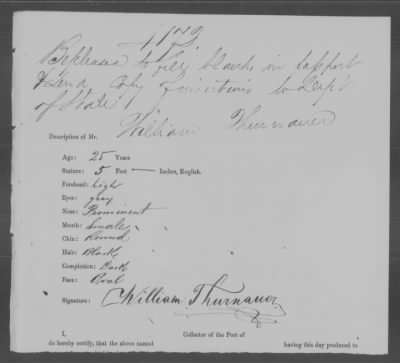 1172
Be pleased to fill blanks in passport
& send copy of insertions to Dep't
of State
William Thurnauer
Description of Mr.
Age: 25 Years
Stature: 5 Feet — Inches, English.
Forehead: high
Eyes: gray
Nose: Prominent
Mouth: Small
Chin: Round
Hair: Black
Complexion: Dark
Face: Oval
Signature: William Thurnauer
I, Collector of the Port of
do hereby certify, that the above named having this day produced to